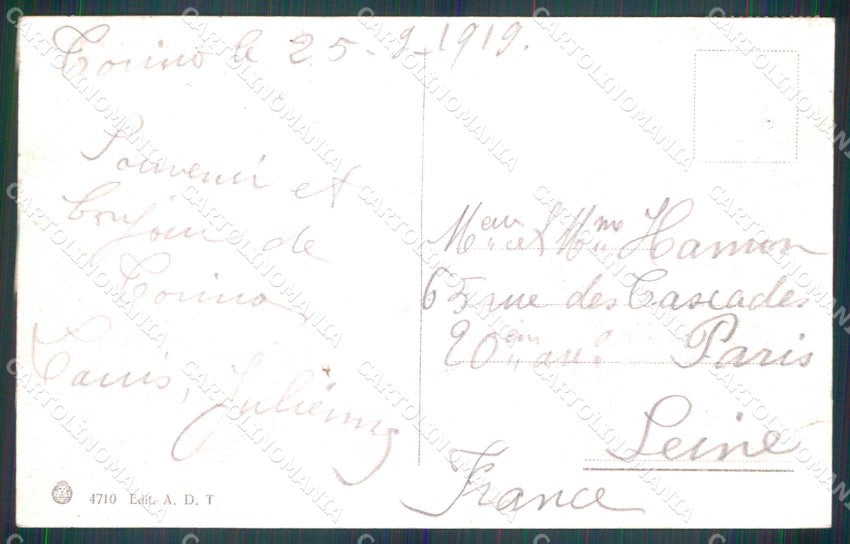 Torino le 25-9-1919.
Souvenir et
bonjour de
Torino
Julienne
Meur et Mme Hamon
65 rue des Cascades
20eme arr. Paris
Seine
France
4710 Edit. A. D. T
CARTOLINOMANIA